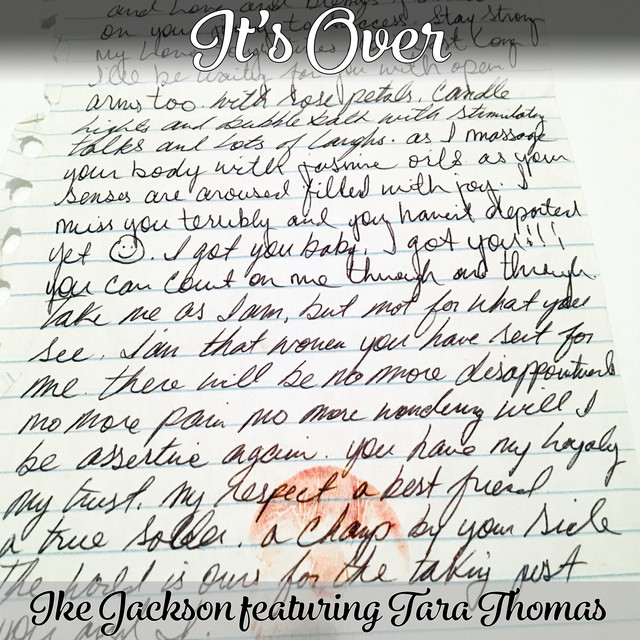 and Love and
on your
It's Over
Stay strong
my Love
Long
I'll be waiting for you with open
arms too. with rose petals. Candle
lights and bubble bath with stimulating
talks and Lots of laughs. as I massage
your body with jasmine oils as your
senses are aroused filled with joy. I
miss you terribly and you havent departed
yet ☺. I got you baby. I got you!!!
you can count on me through and through.
Take me as I am, but not for what you
see. I am that women you have sent for
me. there will be no more disappointments
no more pain no more wondering will I
be assertive again. you have my loyalty
my trust. my respect a best friend
a true solder. a champ by your side
the world is ours for the taking just
you and I.
Ike Jackson featuring Tara Thomas